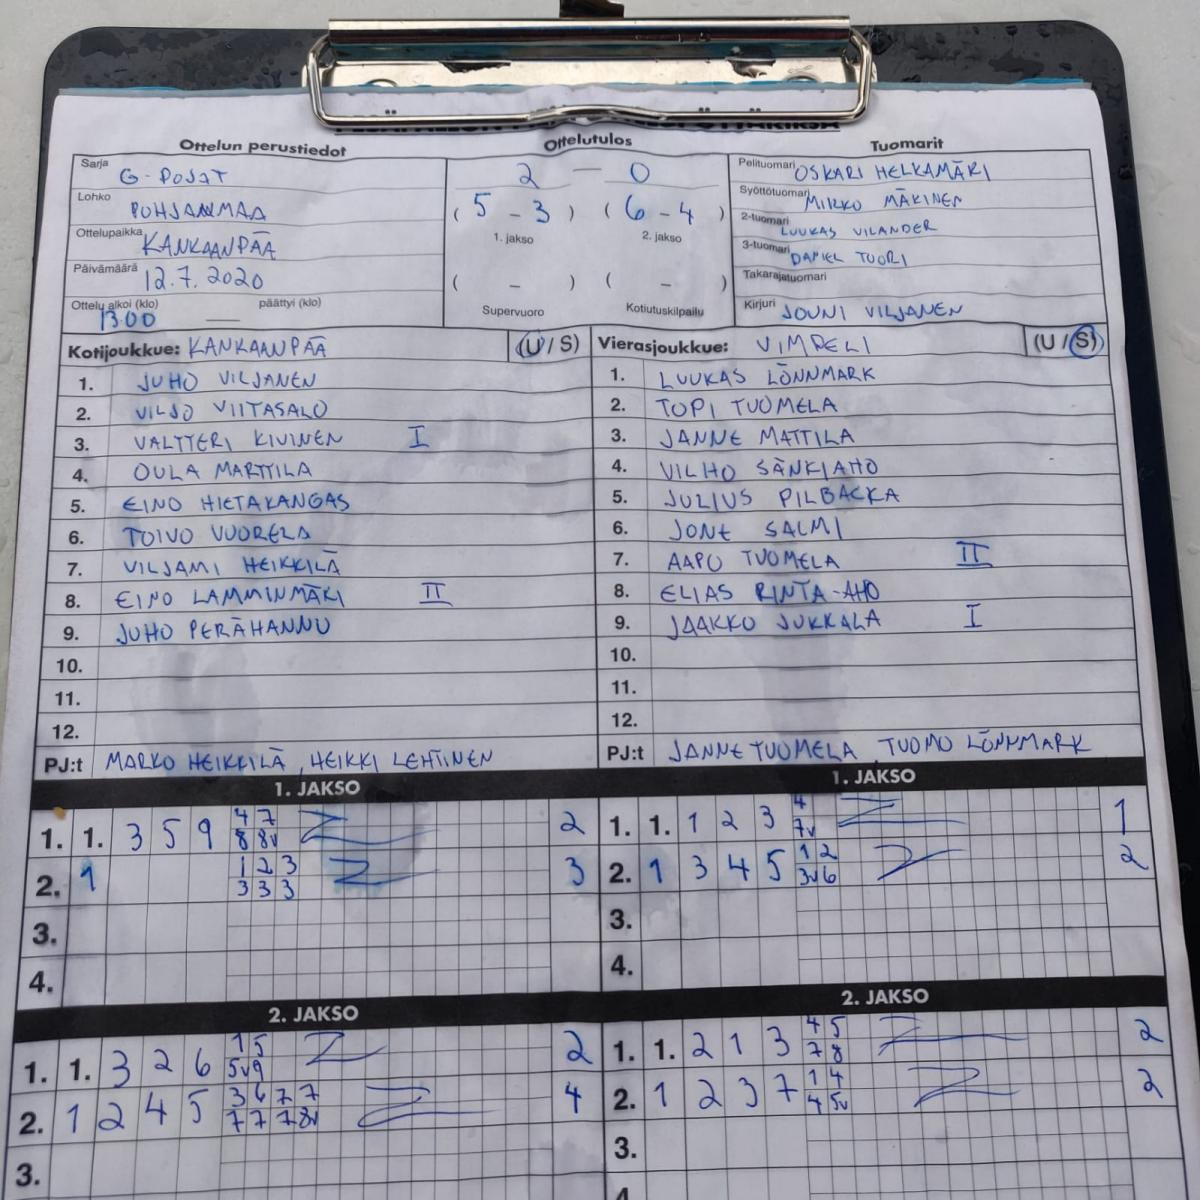 Ottelun perustiedot Ottelutulos Tuomarit
Sarja G-POJAT 2 — 0 Pelituomari OSKARI HELKAMÄKI
Lohko POHJANMAA ( 5 - 3 ) ( 6 - 4 ) Syöttötuomari MIRKO MÄKINEN
1. jakso 2. jakso 2-tuomari LUUKAS VILANDER
Ottelupaikka KANKAANPÄÄ 3-tuomari DANIEL TUORI
Päivämäärä 12.7.2020 ( - ) ( - ) Takarajatuomari
Ottelu alkoi (klo) 13.00 — päättyi (klo) Supervuoro Kotiutuskilpailu Kirjuri JOUNI VILJANEN
Kotijoukkue: KANKAANPÄÄ (U / S) Vierasjoukkue: VIMPELI (U / S)
1. JUHO VILJANEN 1. LUUKAS LÖNNMARK
2. VILJO VIITASALO 2. TOPI TUOMELA
3. VALTTERI KIVINEN I 3. JANNE MATTILA
4. OULA MARTTILA 4. VILHO SÄNKIAHO
5. EINO HIETAKANGAS 5. JULIUS PILBACKA
6. TOIVO VUORELA 6. JONE SALMI
7. VILJAMI HEIKKILÄ 7. AAPO TUOMELA II
8. EINO LAMMINMÄKI II 8. ELIAS RINTA-AHO
9. JUHO PERÄHANNU 9. JAAKKO JUKKALA I
10. 10.
11. 11.
12. 12.
PJ:t MARKO HEIKKILÄ, HEIKKI LEHTINEN PJ:t JANNE TUOMELA, TUOMO LÖNNMARK
1. JAKSO 1. JAKSO
1. 1. 3 5 9 4 7 2 1. 1. 1 2 3 4 1
8 8v 7v
2. 1 1 2 3 3 2. 1 3 4 5 1 2 2
3 3 3 3v 6
3. 3.
4. 4.
2. JAKSO 2. JAKSO
1. 1. 3 2 6 1 5 2 1. 1. 2 1 3 4 5 2
5v 9 7 8
2. 1 2 4 5 3 6 7 7 4 2. 1 2 3 7 1 4 2
7 7 7 8v 4 5v
3. 3.
4